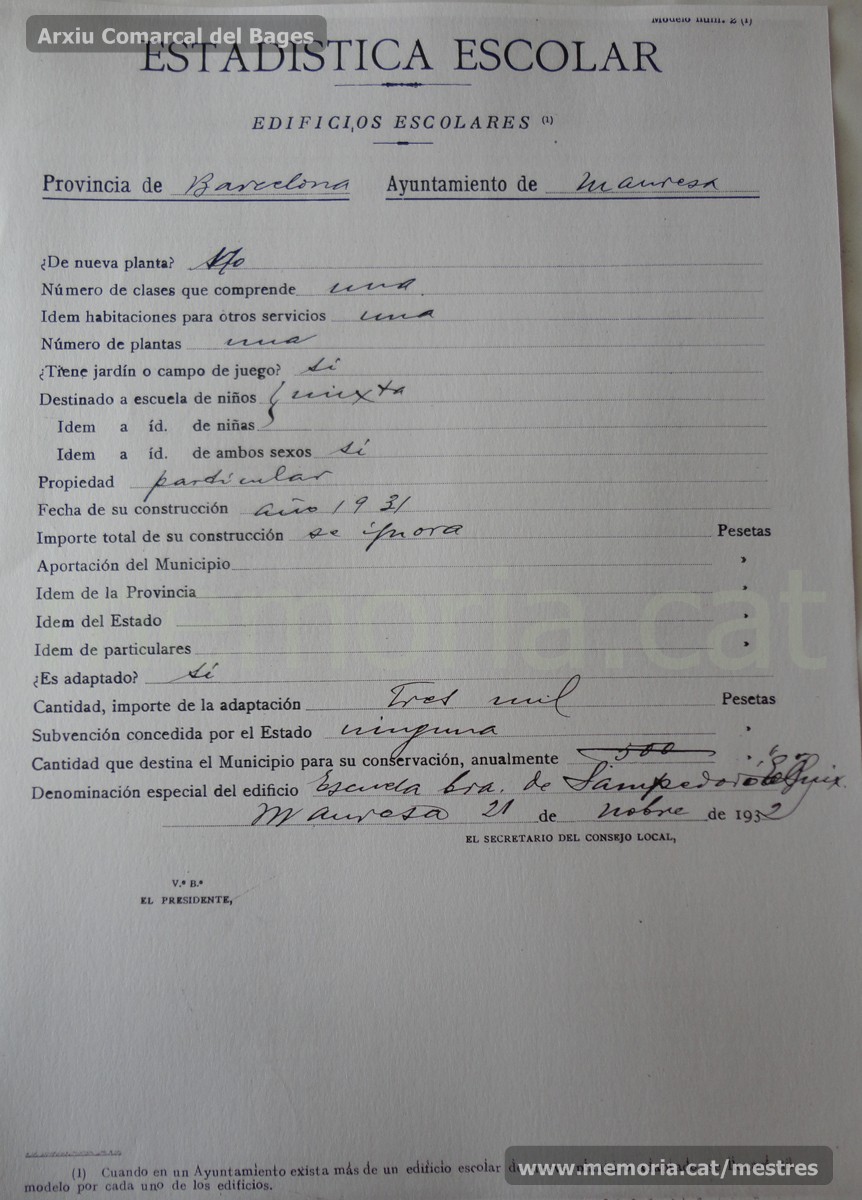 Arxiu Comarcal del Bages
Modelo núm. 2 (1)
ESTADISTICA ESCOLAR
EDIFICIOS ESCOLARES (1)
Provincia de Barcelona Ayuntamiento de Manresa
¿De nueva planta? No
Número de clases que comprende una.
Idem habitaciones para otros servicios una
Número de plantas una
¿Tiene jardín o campo de juego? sí
Destinado a escuela de niños mixta
Idem a íd. de niñas
Idem a íd. de ambos sexos sí
Propiedad particular
Fecha de su construcción año 1931
Importe total de su construcción se ignora Pesetas
Aportación del Municipio »
Idem de la Provincia »
Idem del Estado »
Idem de particulares »
¿Es adaptado? Sí
Cantidad, importe de la adaptación Tres mil Pesetas
Subvención concedida por el Estado ninguna »
Cantidad que destina el Municipio para su conservación, anualmente 500 »
Denominación especial del edificio Escuela Cra. de Sampedor "El Guix"
Manresa 21 de nobre de 1932
EL SECRETARIO DEL CONSEJO LOCAL,
V.º B.º
EL PRESIDENTE,
memoria.cat
(1) Cuando en un Ayuntamiento exista más de un edificio escolar
modelo por cada uno de los edificios.
www.memoria.cat/mestres